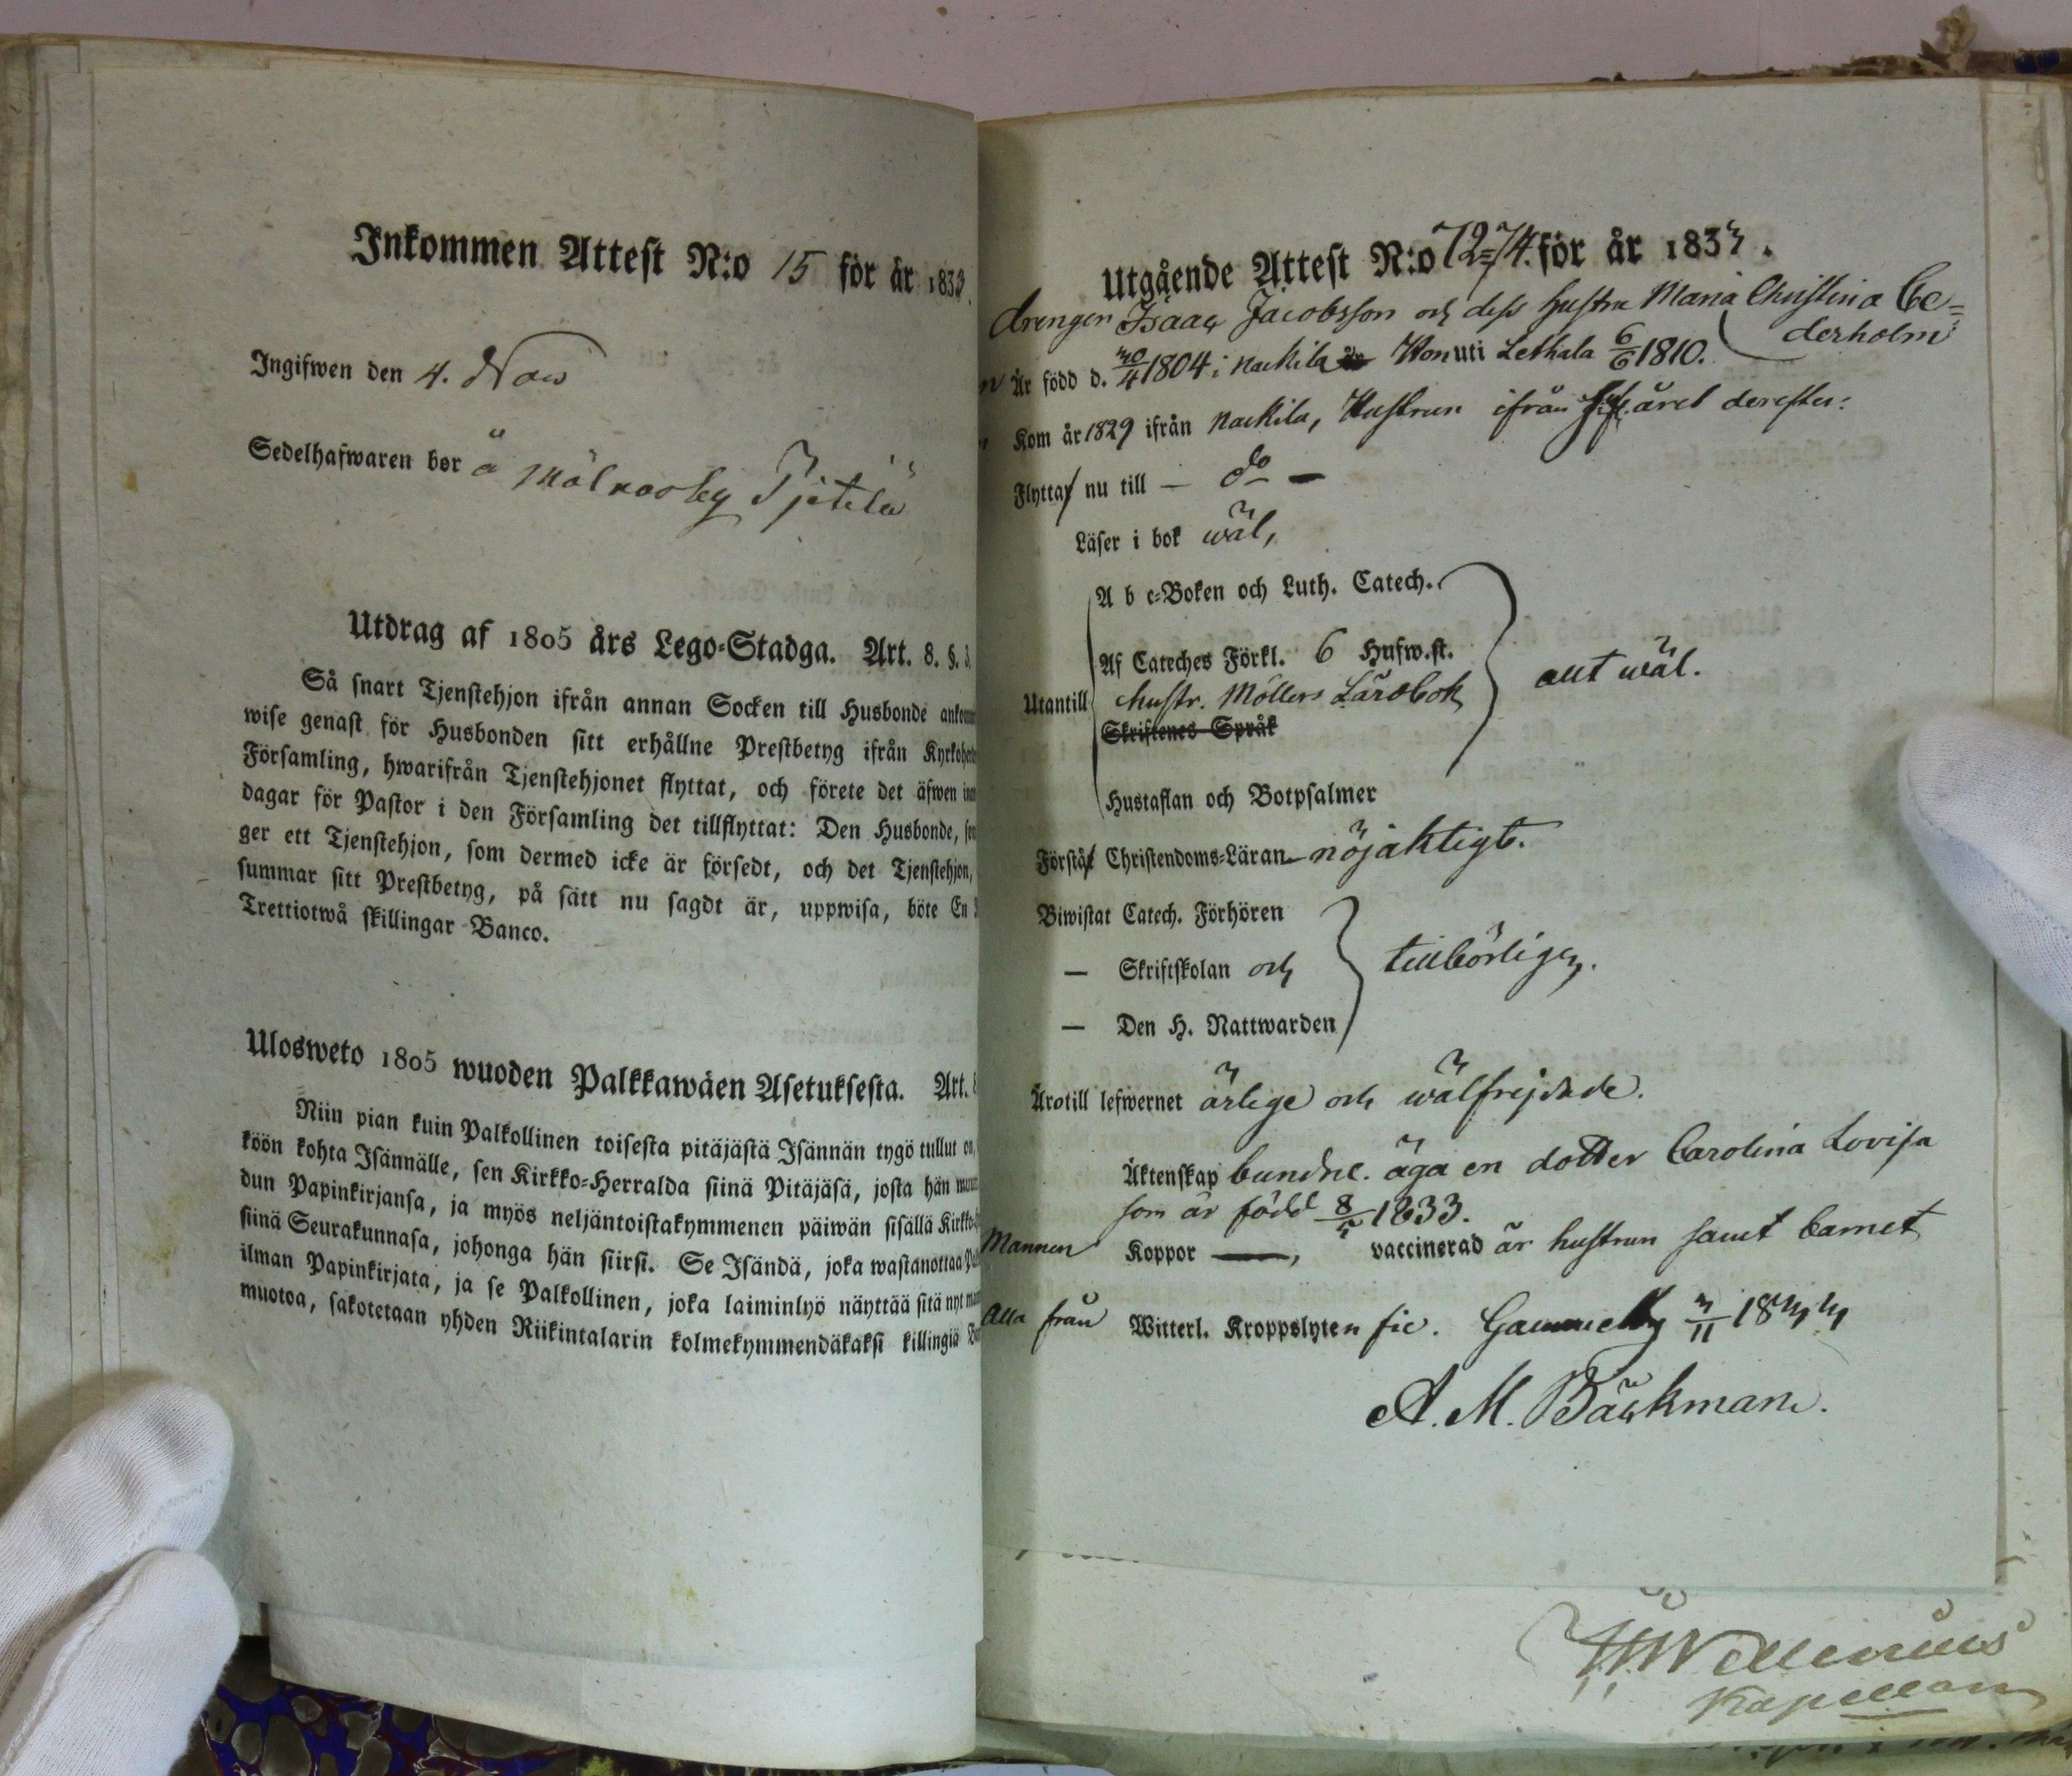 Inkommen Attest N:o 15 för år 1833.
Ingifwen den 4. Nov
Sedelhafwaren bor å
Utdrag af 1805 års Lego-Stadga. Art. 8. §. 3.
Så snart Tjenstehjon ifrån annan Socken till Husbonde
wise genast för Husbonden sitt erhållne Prestbetyg ifrån
Församling, hwarifrån Tjenstehjonet flyttat, och förete det äfwen
dagar för Pastor i den Församling det tillflyttat: Den Husbonde,
ger ett Tjenstehjon, som dermed icke är försedt, och det Tjenstehjon,
summar sitt Prestbetyg, på sätt nu sagdt är, uppwisa, böte En
Trettiotwå skillingar Banco.
Ulosweto 1805 wuoden Palkkawäen Asetuksesta. Art.
Niin pian kuin Palkollinen toisesta pitäjästä Isännän tygö tullut on,
köön kohta Isännälle, sen Kirkko-Herralda siinä Pitäjäsä, josta hän
dun Papinkirjansa, ja myös neljäntoistakymmenen päiwän sisällä
siinä Seurakunnasa, johonga hän siirsi. Se Isändä, joka wastanottaa
ilman Papinkirjata, ja se Palkollinen, joka laiminlyö näyttää sitä nyt
muotoa, sakotetaan yhden Riikintalarin kolmekymmendäkaksi killingiä
Utgående Attest N:o 72=74. för år 1833.
drengen Isaac Jacobsson och dess hustru Maria Christina Ce=
derholm
Är född d. 30/4 1804 i Nackila Hon uti Lethala 6/6 1810.
Kom år 1829 ifrån Nackila, Hustrun ifrån året derefter:
Flytta nu till — do —
Läser i bok wäl,
A b c-Boken och Luth. Catech.
Af Cateches Förkl. 6 Hufw.st.
Utantill hustr. Möllers Lärobok allt wäl.
Skriftenes Språk
Hustaflan och Botpsalmer
Förstå Christendoms-Läran nöjaktigt.
Biwistat Catech. Förhören
— Skriftskolan och tillbörligen.
— Den H. Nattwarden
Äro till lefwernet ärlige och wälfrejdade.
Äktenskap bundne. äga en dotter Carolina Lovisa
som är född 8/5 1833.
Mannen Koppor —, vaccinerad är hustrun samt barnet
Alla från Witterl. Kroppslyten fri. Gammelby 3/11 1833
A. M. Bäckman.
Kapellan